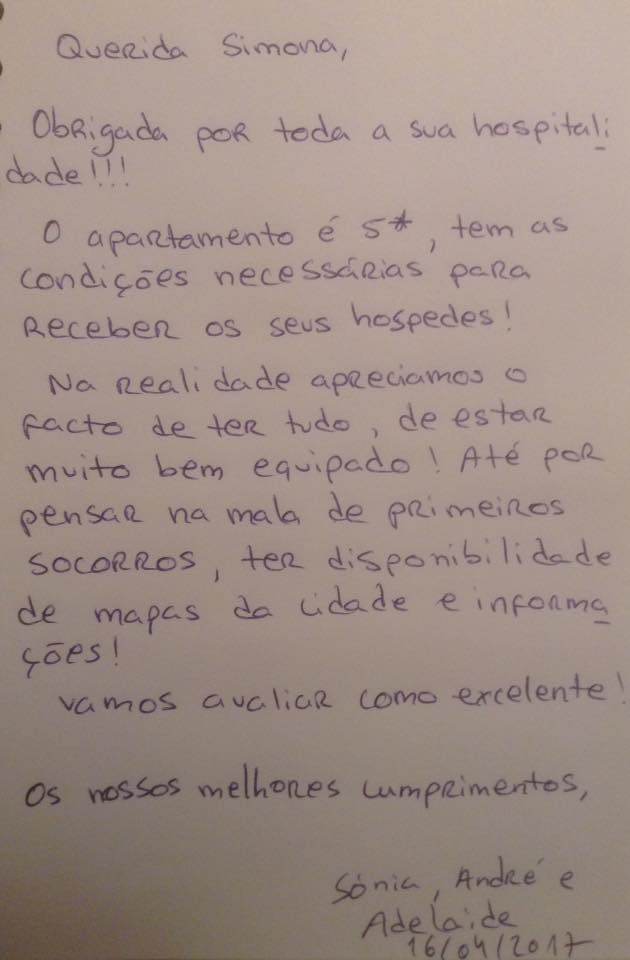 Querida Simona,
Obrigada por toda a sua hospitali
dade!!!
O apartamento é 5*, tem as
condições necessárias para
receber os seus hospedes!
Na realidade apreciamos o
facto de ter tudo, de estar
muito bem equipado! Até por
pensar na mala de primeiros
socorros, ter disponibilidade
de mapas da cidade e informa
ções!
Vamos avaliar como excelente!
Os nossos melhores cumprimentos,
Sónia, André e
Adelaide
16/04/2017